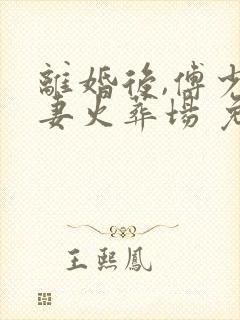 離婚後,傅少
妻火葬場
王熙鳳